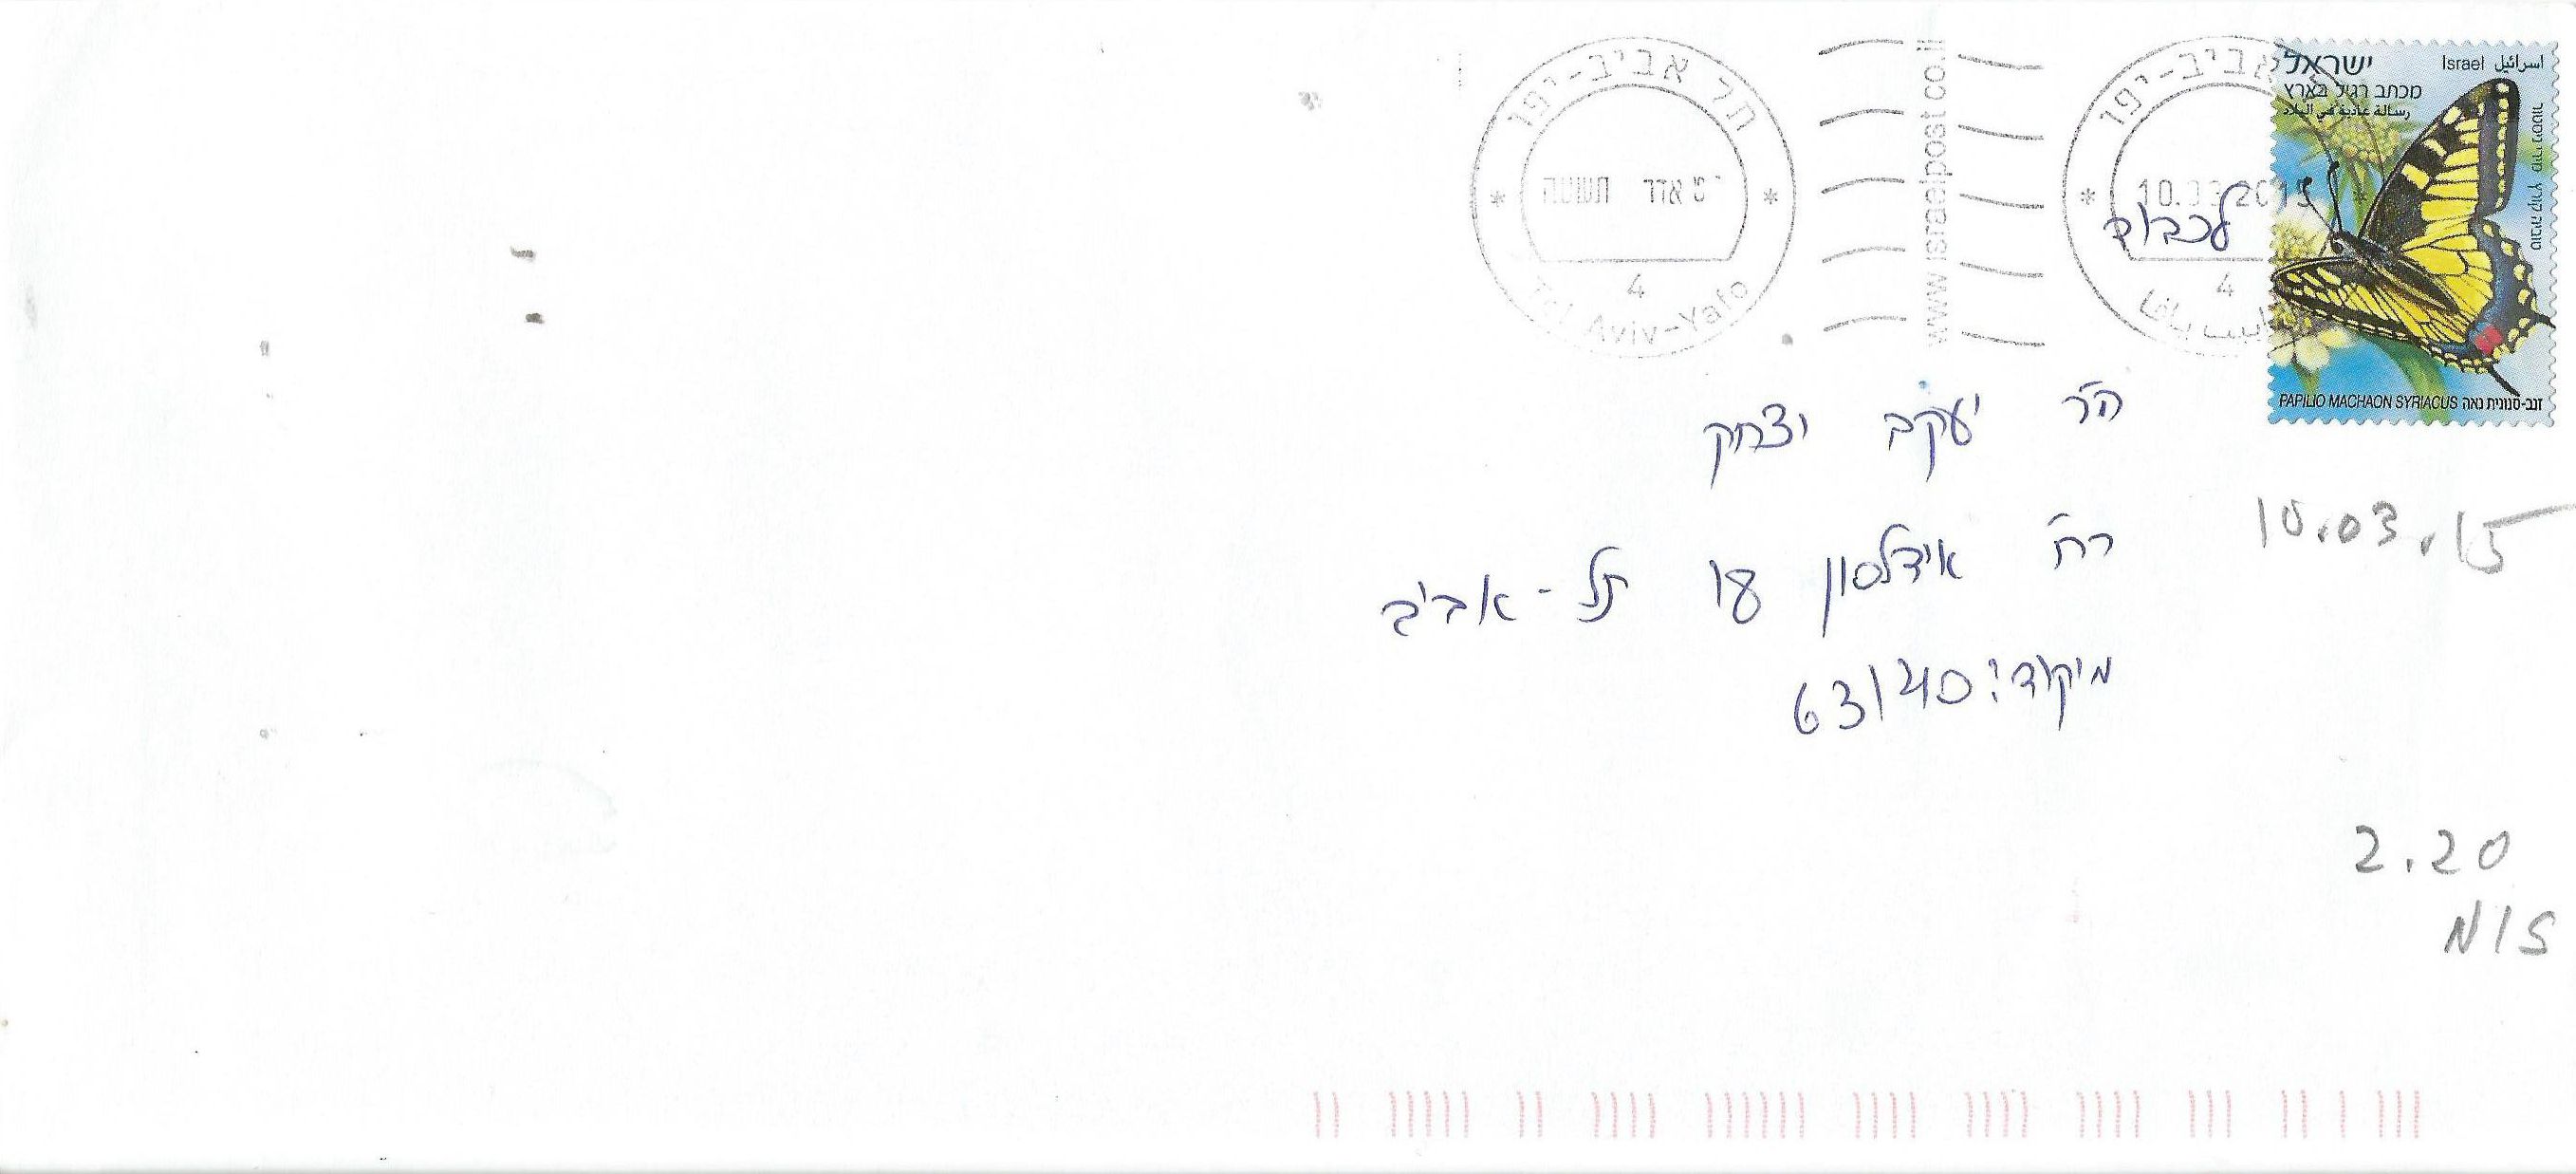 תל אביב-יפו
תשע״ה אדר
4
Tel Aviv-Yafo
www.israelpost.co.il
אביב-יפו
10.03.2015
4
ישראל
Israel اسرائيل
מכתב רגיל בארץ
رسالة عادية في البلاد
PAPILIO MACHAON SYRIACUS זנב-סנונית נאה
לכבוד
ה״ר יעקב יצחק
רח' אידלסון 18 תל-אביב
מיקוד: 63140
10.03.15
2.20
NIS